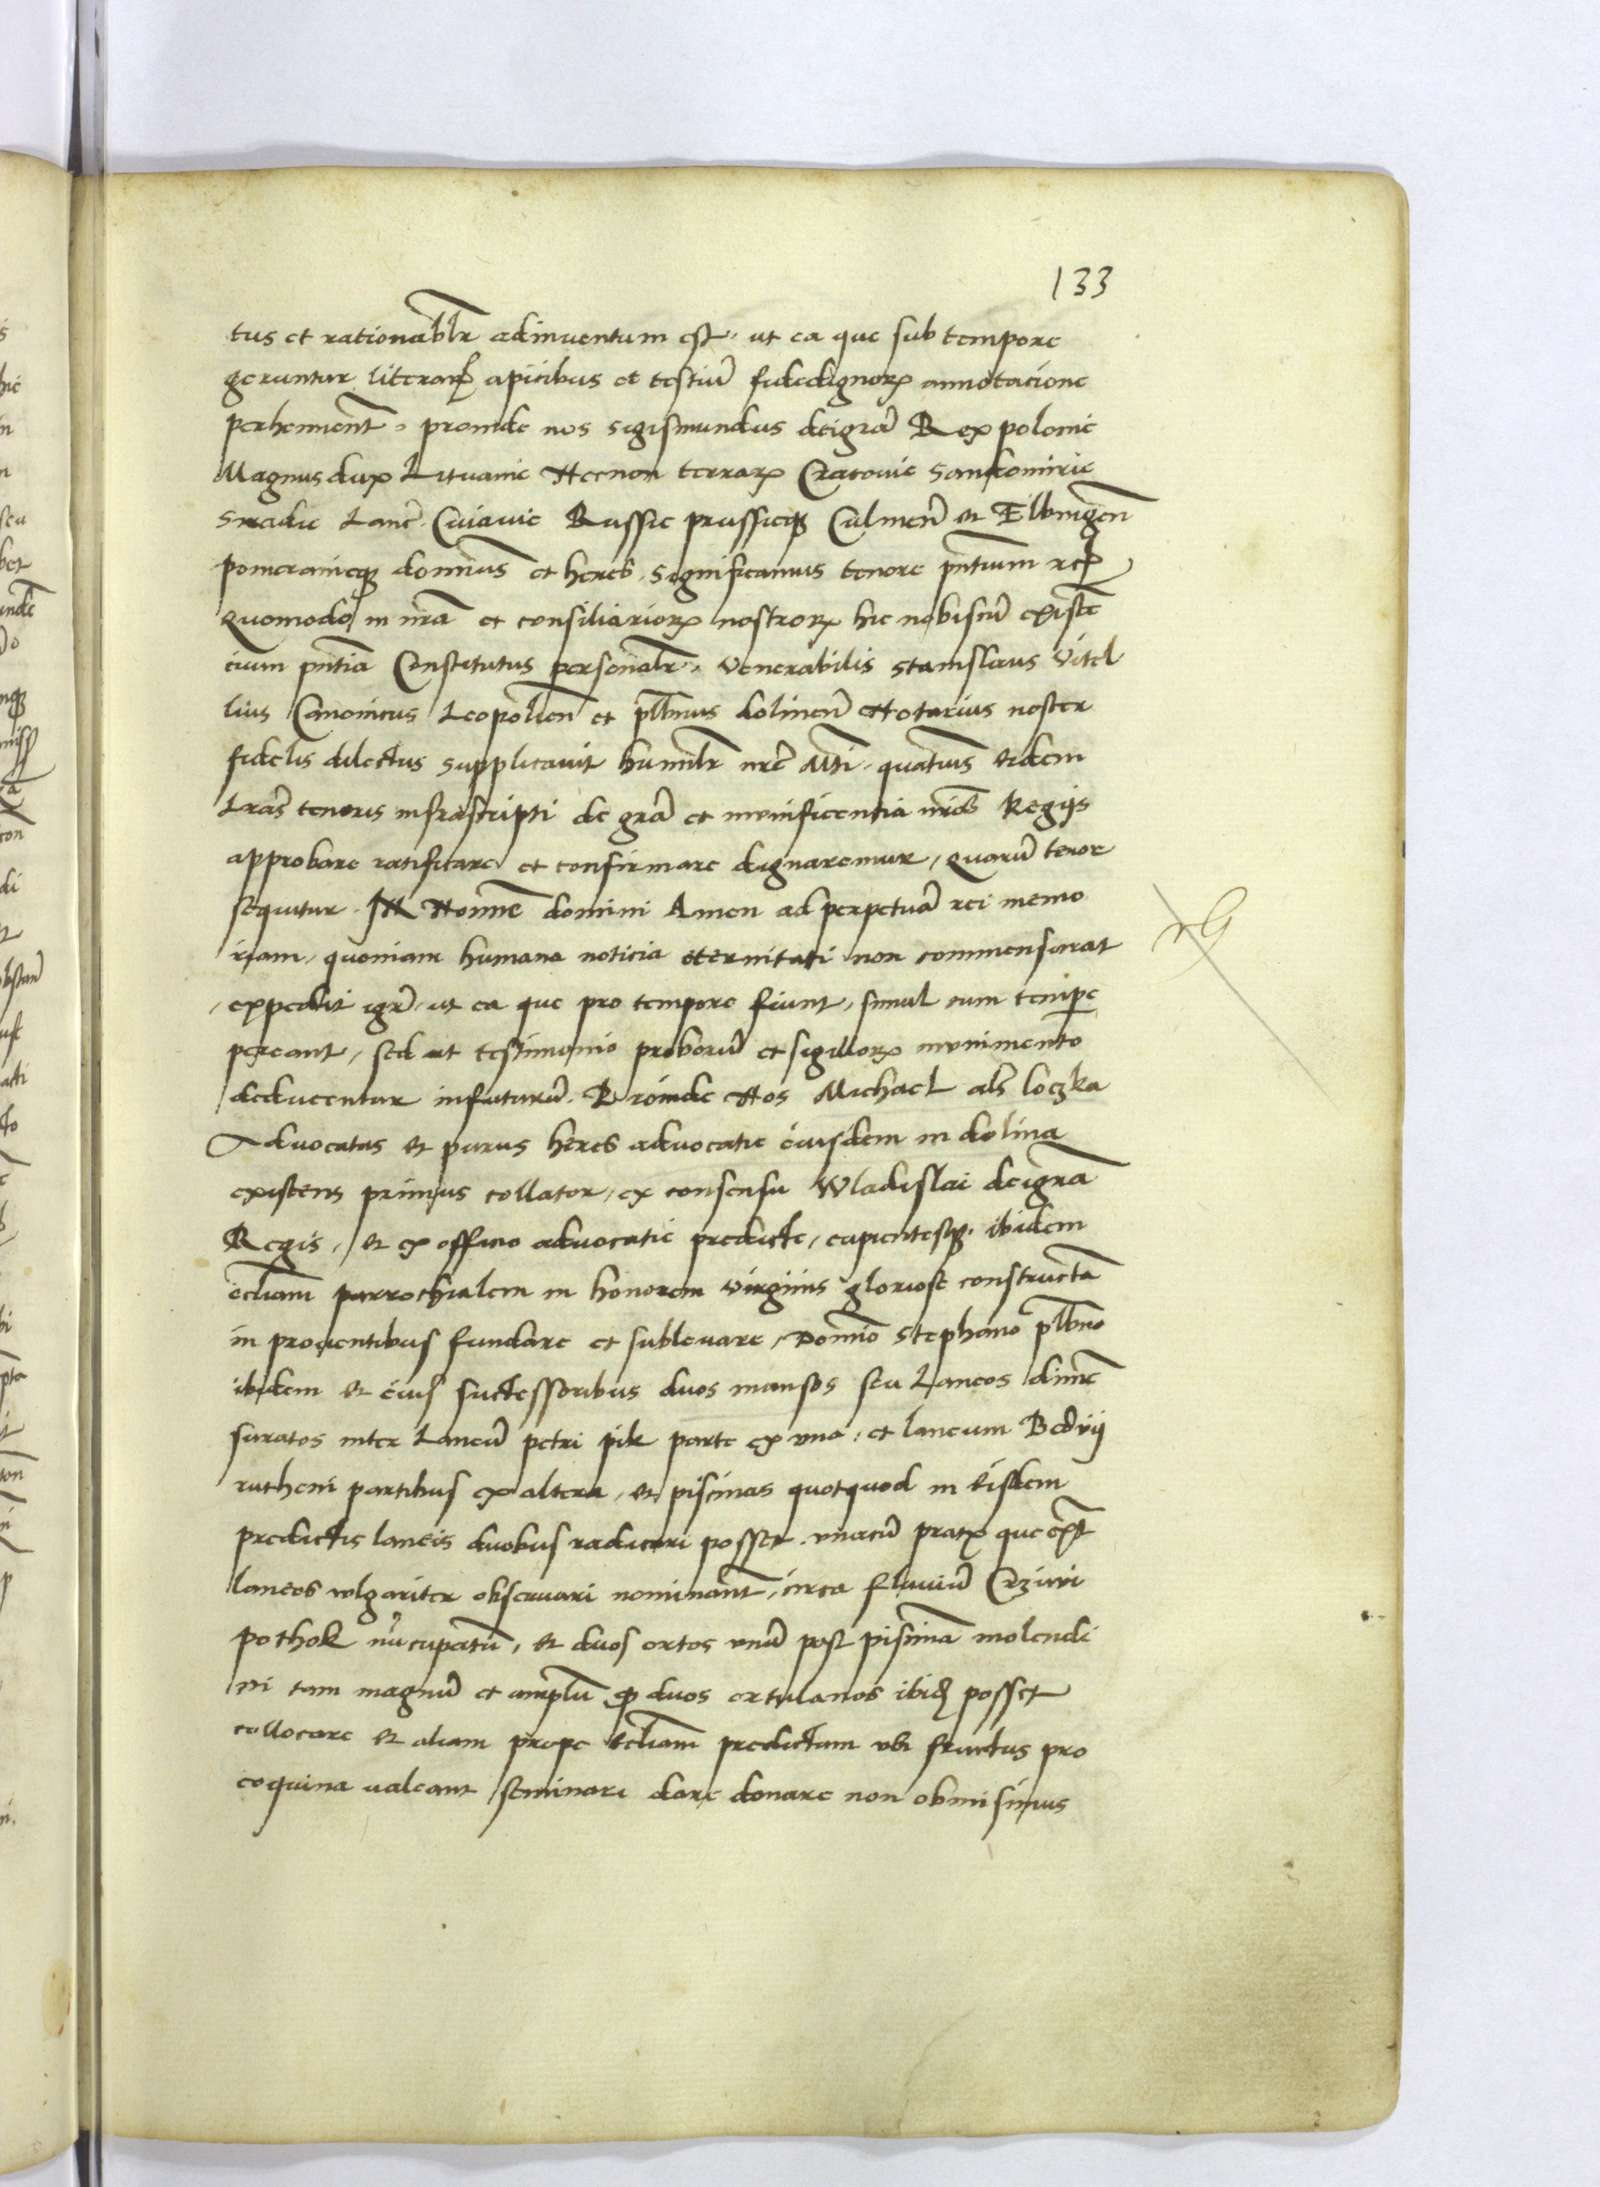 133
tus et rationablr adinventum est. ut ea que sub tempore
geruntur literarꝝ apicibus et testiũ fidedignorꝝ annotacione
perhennent̃. proinde nos Sigismundus deigrã Rex polonie
Magnus dux Lituanie Necnon terrarꝝ Cracovie Sandomirie
Siradie Lanc̃. Cuiavie Russie prussieqꝫ Culmeñ et Elbingeñ
pomeranieqꝫ dominus et heres. Significamus tenore pñtium rcꝭ
Quomodo in nrã et consiliariorꝝ nostrorꝝ hic nobiscũ existẽ
cium pñtia Constitutus personalr̃. Venerabilis Stanislaus Vitel
lius Canonicus Leopolieñ et plb̃nus dolineñ Notarius noster
fidelis dilectus supplicavit humilr̃ nrẽ Mti. quatinus eidem
Lrãs tenoris infrascripti de grã et munificentia nris̃ Regijs
approbare ratificare et confirmare dignaremur, Quarũ tenor
sequitur. IN Noĩne domini Amen ad perpetuã rei memo
riam, quoniam humana noticia eternitati non commensurat
expedit igr̃. ut ea que pro tempore fiunt, simul cum tempe
pereant, sed ut testimonio proborũ et sigillorꝝ munimento
deducentur infuturũ. Proinde Nos Michael als̃ loczka
Advocatus et purus heres advocatie eiusdem in dolina
existens primus collator, ex consensu Wladislai deigrã
Regis, et ex officio advocatie predicte, cupientesqꝫ. ibidem
ecl̃iam parrochialem in honorem virginis gloriose constructã
in proventibus fundare et sublevare, Domino Stephano plb̃no
ibidem et eius successoribus duos mansos seu Laneos dimẽ
suratos inter Laneũ petri pik parte ex una, et laneum Bedrij
rutheni partibus ex altera, et piscinas quotquod in eisdem
predictis laneis duobus radicari posset. unacũ pratꝭ que ext̃
laneos vlgariter observari nominant̃, circa fluviũ Crziwi
pothok nũcupatũ, et duos ortos unũ post piscinã molendi
ni tam magnũ et amplũ ꝙ duos ortulanos ibidꝫ posset
collocare et aliam prope ecl̃iam predictam ubi fructus pro
coquina valeant seminari dare donare non obmisimus